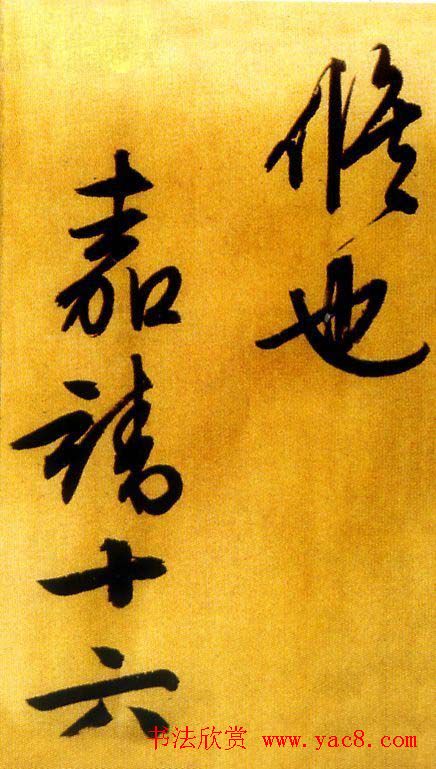 修也
嘉靖十六
书法欣赏 www.yac8.com